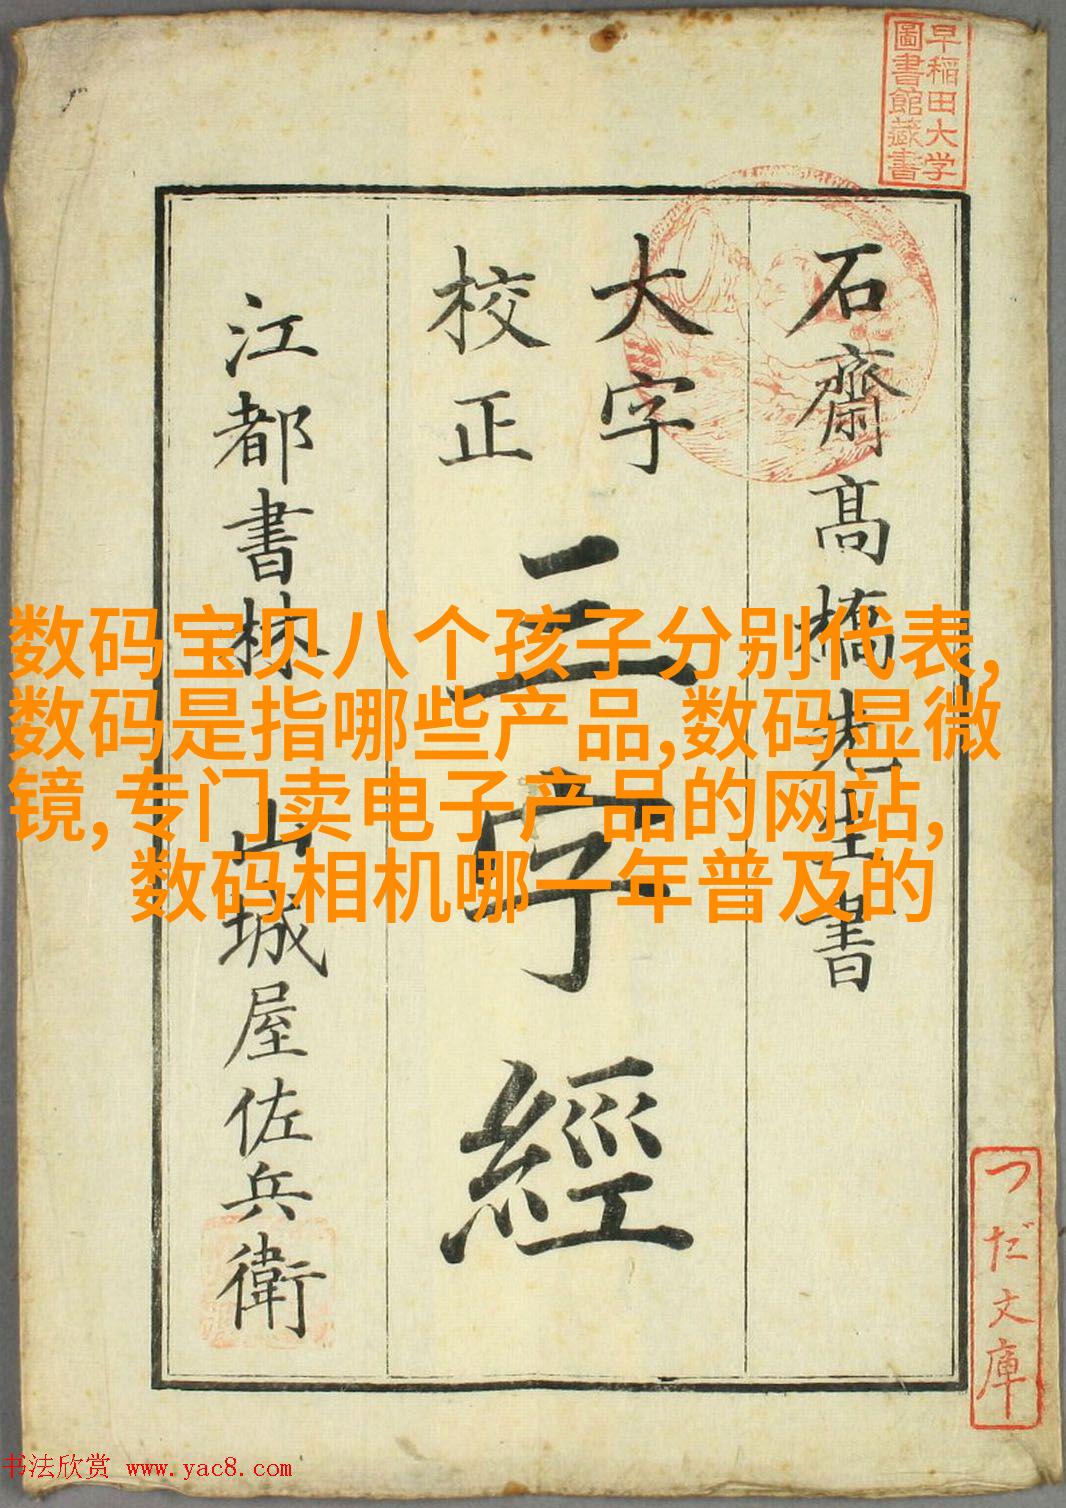 早稲田大学
圖書館蔵書
石齋髙橋先生書
大字
校正
三字經
江都書林 山城屋佐兵衛
数码宝贝八个孩子分别代表,
数码是指哪些产品,数码显微
镜,专门卖电子产品的网站,
数码相机哪一年普及的
つだ文庫
书法欣赏 www.yac8.com